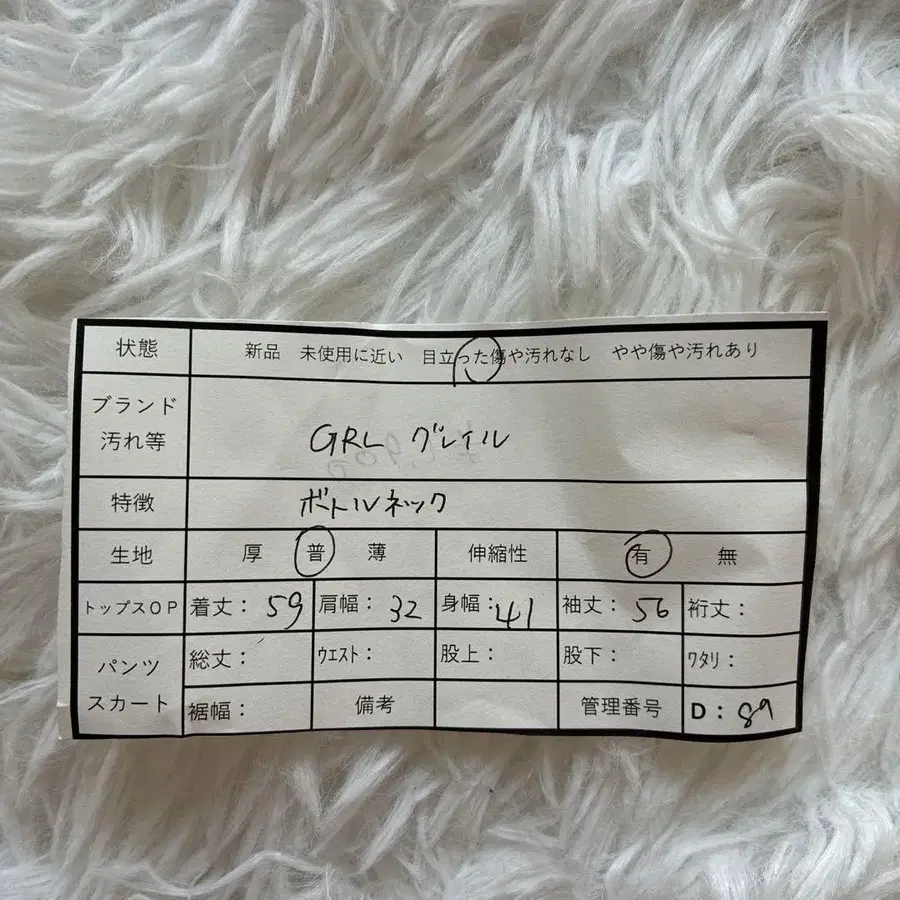 状態 新品 未使用に近い 目立った傷や汚れなし やや傷や汚れあり
ブランド
汚れ等 GRL グレイル
特徴 ボトルネック
生地 厚 普 薄 伸縮性 有 無
トップスOP 着丈: 59 肩幅: 32 身幅: 41 袖丈: 56 裄丈:
パンツ
スカート
総丈: ウエスト: 股上: 股下: ワタリ:
裾幅: 備考 管理番号 D: 89